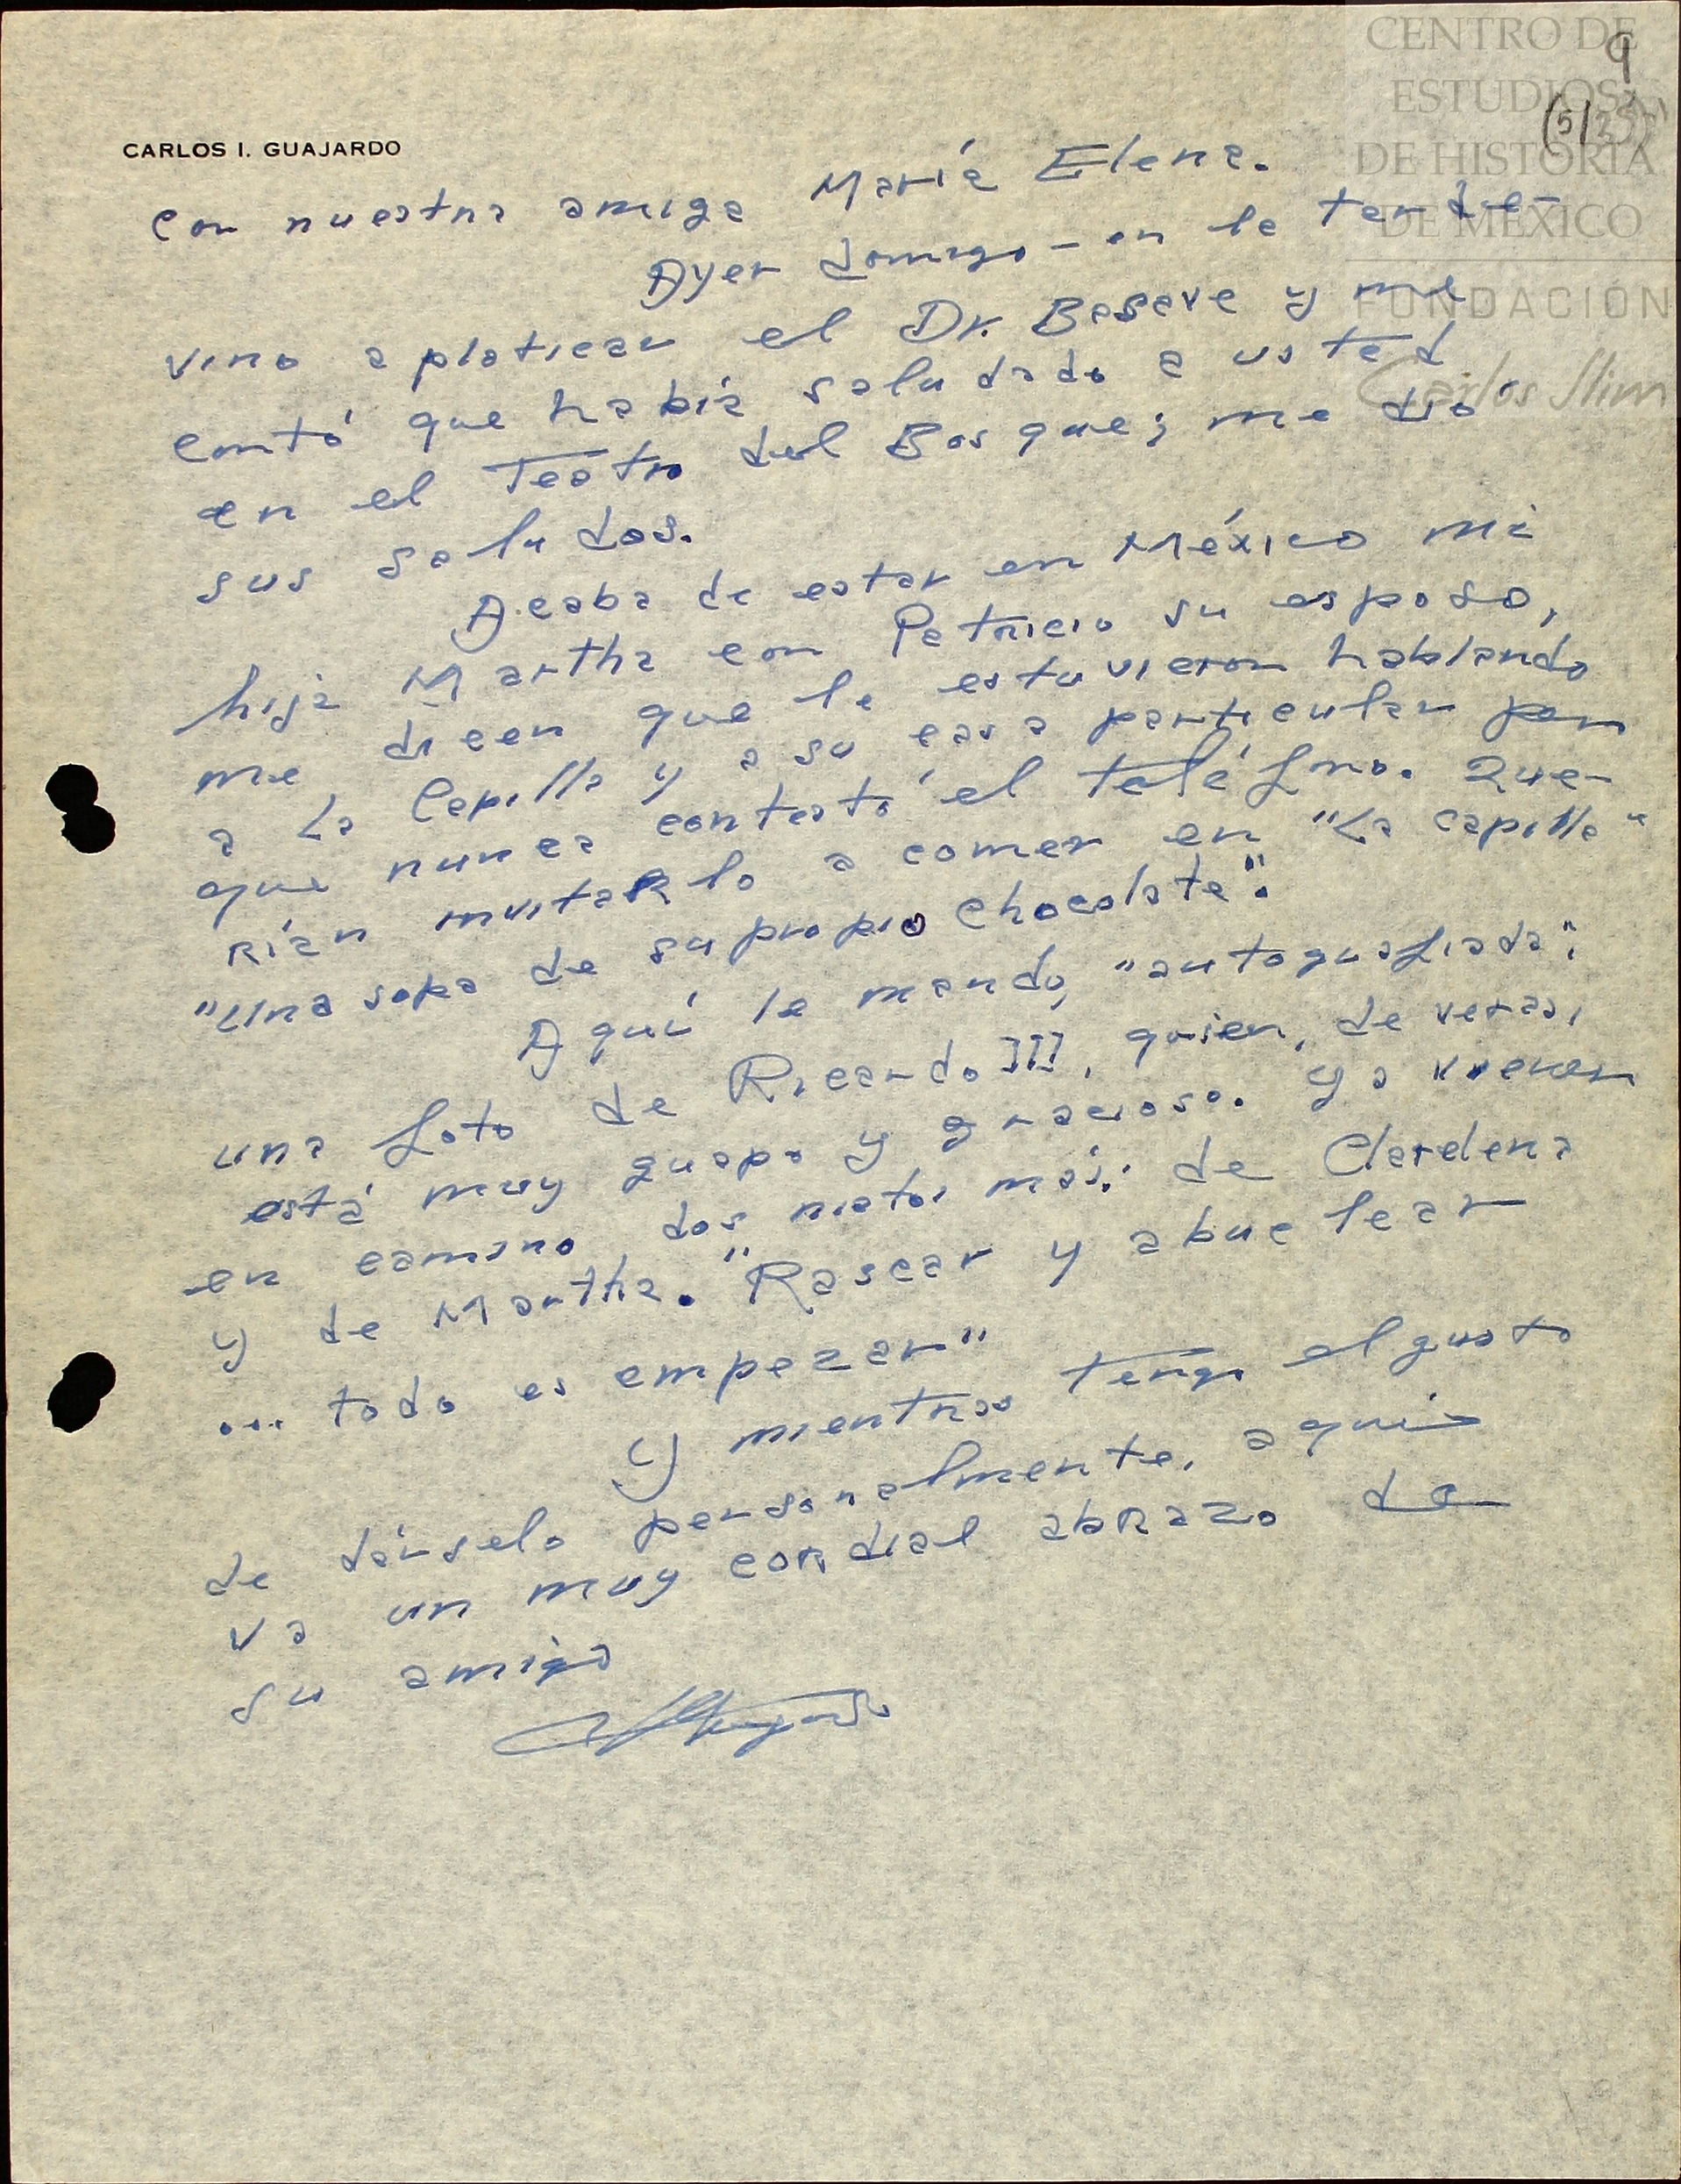 CENTRO DE
ESTUDIOS
DE HISTORIA
DE MÉXICO
FUNDACIÓN
Carlos Slim
9
CARLOS I. GUAJARDO
con nuestra amiga María Elena.
Ayer domingo - en la tarde -
vino a platicar el Dr. Basave y me
contó que había saludado a usted
en el Teatro del Bosque; me dió
sus saludos.
Acaba de estar en México mi
hija Martha con Patricio su esposo,
me dicen que le estuvieron hablando
a La Capilla y a su casa particular pero
que nunca contestó el teléfono. Que-
rían invitarlo a comer en "La Capilla"
"Una sopa de su propio chocolate".
Aquí le mando, "autografiada",
una foto de Ricardo III, quien, de veras,
está muy guapo y gracioso. Ya vienen
en camino, dos nietos más: de Clardena
y de Martha. "Rascar y abuelear
... todo es empezar"
Y mientras tengo el gusto
de dárselo personalmente, aquí
va un muy cordial abrazo de
su amigo